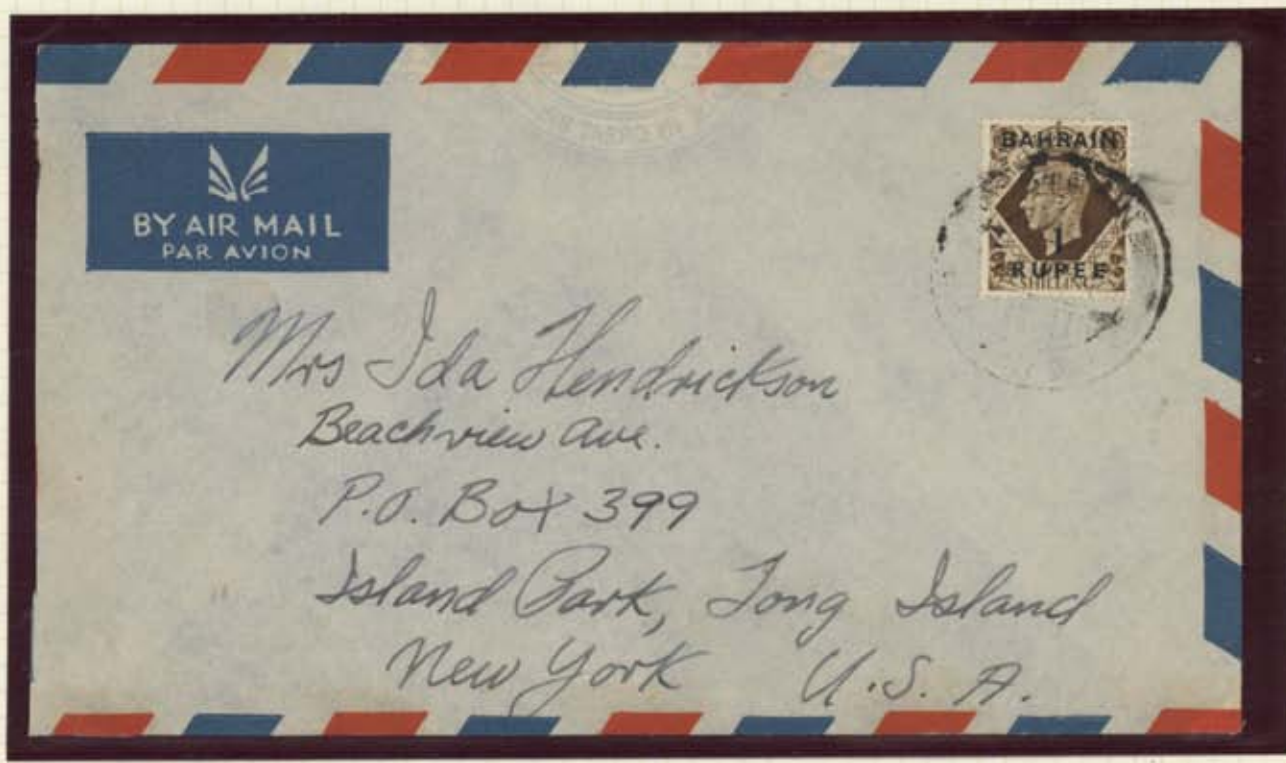 BY AIR MAIL
PAR AVION
BAHRAIN
1
RUPEE
SHILLING
Mrs Ida Hendrickson
Beachview Ave.
P.O. Box 399
Island Park, Long Island
New York U.S.A.